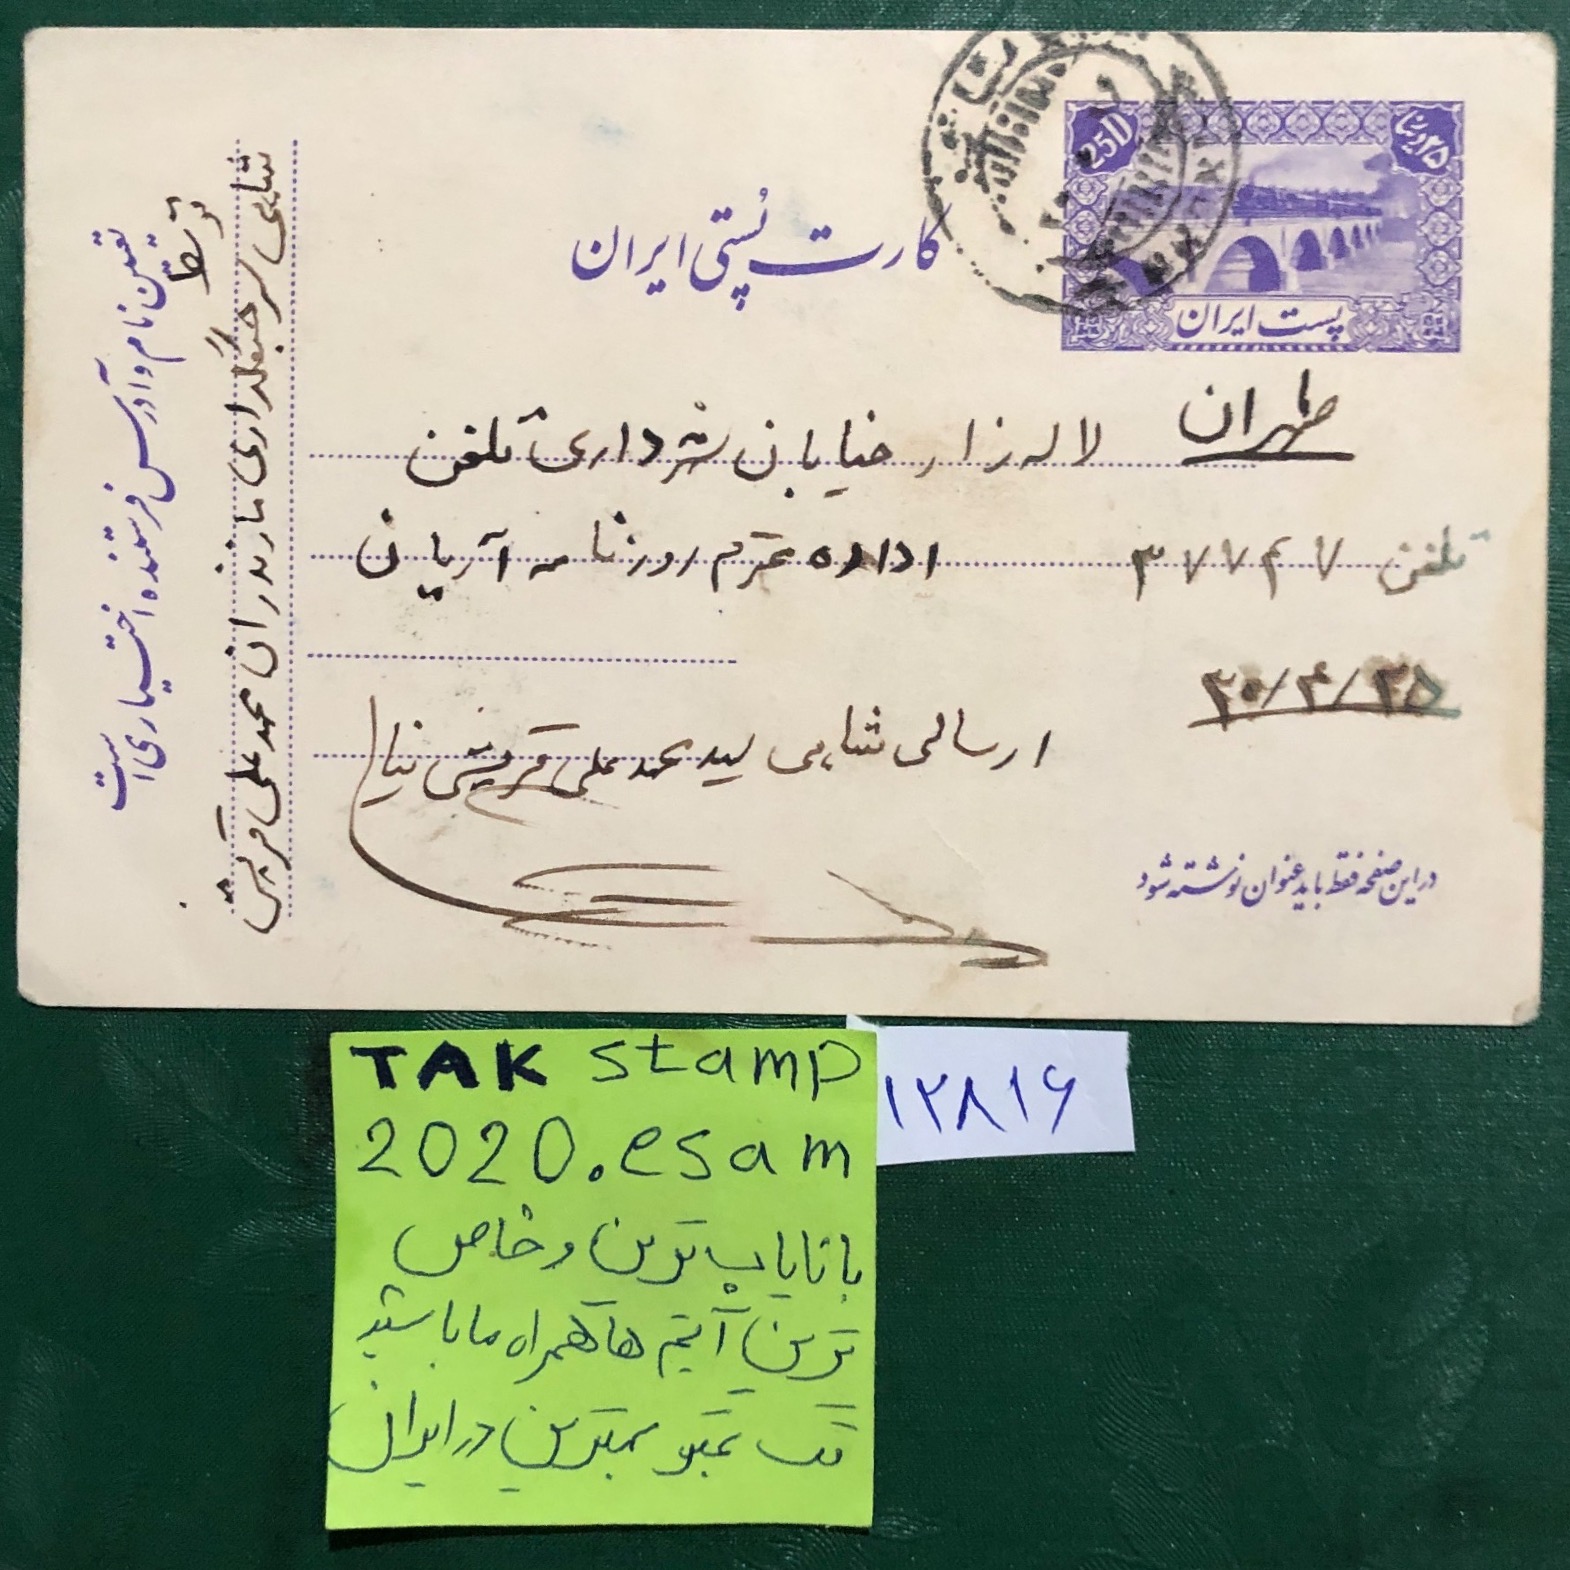 25D
۲۵ دینار
پست ایران
کارت پستی ایران
طهران لاله زار خیابان شهرداری تلفن
تلفن ۳۷۷۴۷ اداره محترم روزنامه آریان
۳۰/۴/۲۵
ارسالی شاهی سید محمد علی قریشی نیا
در این صفحه فقط باید عنوان نوشته شود
تعین نام و آدرس فرستنده اختیاری است
توسط
شاهی سر جنگلداری مازندران محمد علی قریشی
TAK stamp
2020.esam
با نایاب ترین و خاص
ترین آیتم ها همراه ما باشید
تک تمبر بهترین در ایران
۱۲۸۱۶